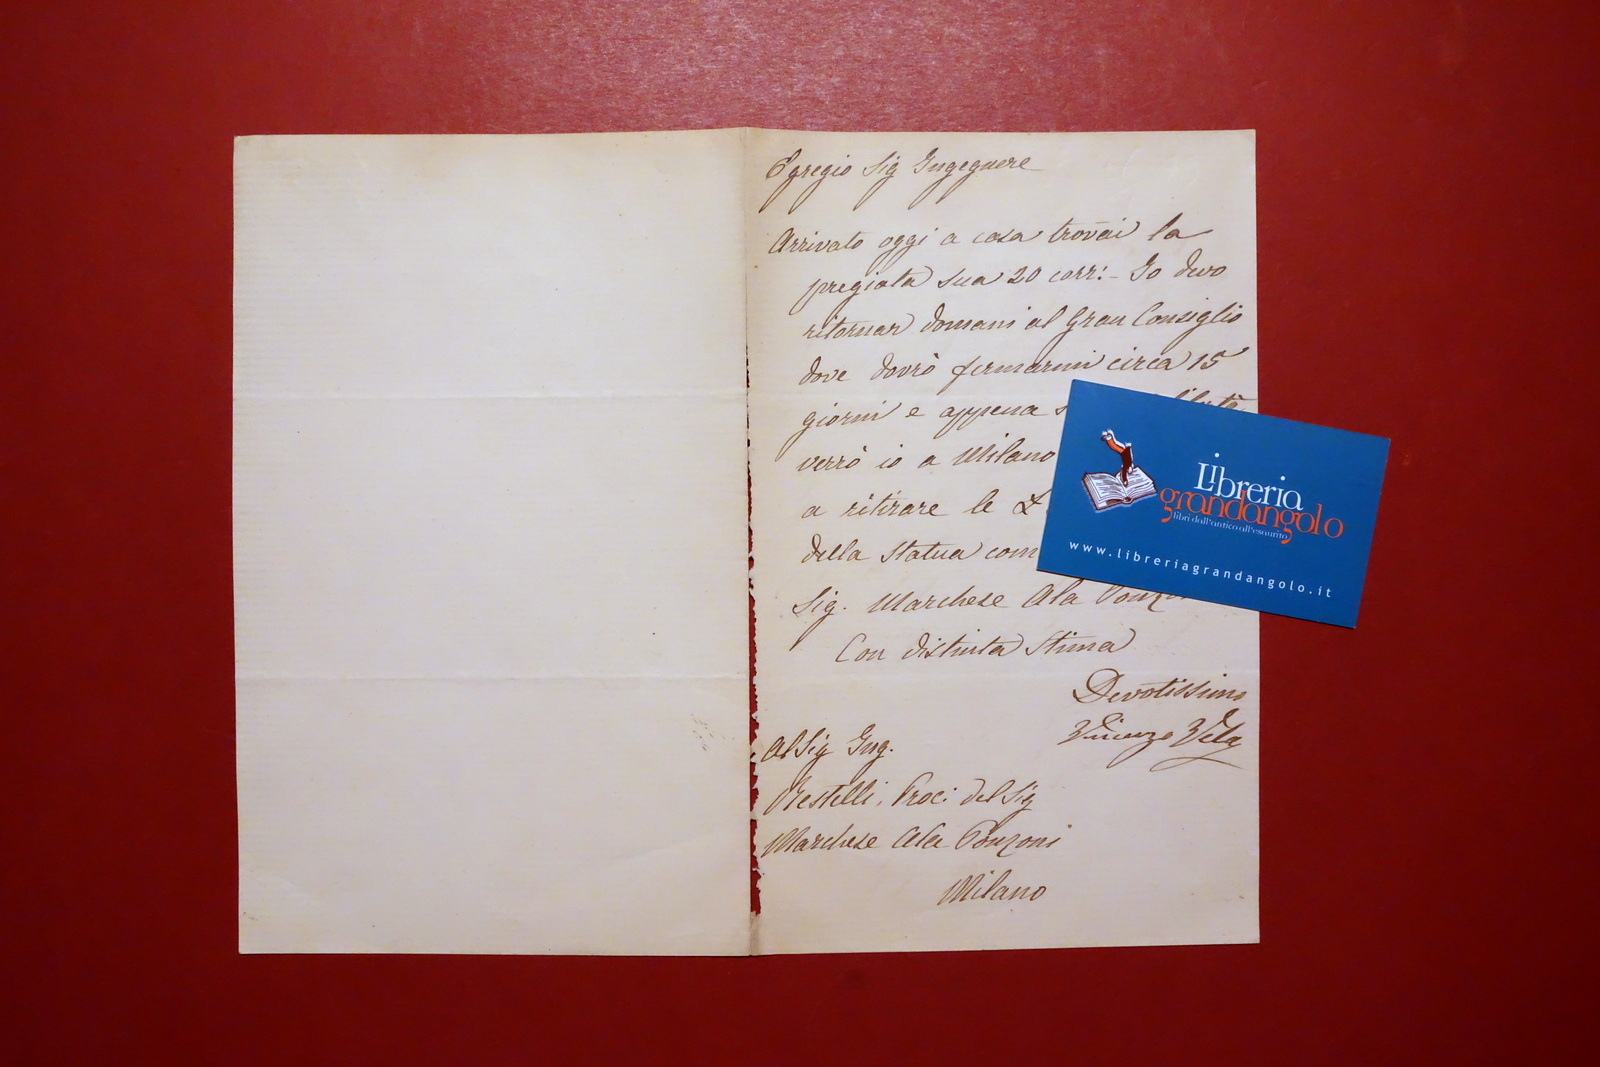 Egregio Sig Ingegnere
Arrivato oggi a casa trovai la
pregiata sua 20 corr: - Io devo
ritornar domani al Gran Consiglio
dove dovrò fermarmi circa 15
giorni e appena
verrò io a Milano
a ritirare le
della Statua com
Sig. Marchese Ala Ponzoni
Con distinta Stima
Devotissimo
Vincenzo Vela
Al Sig Ing.
Restelli, Proc: del Sig
Marchese Ala Ponzoni
Milano
Libreria
grandangolo
libri dall'antico all'esaurito
www.libreriagrandangolo.it